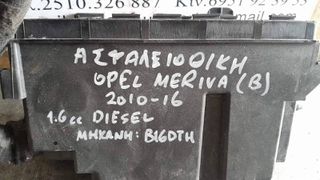 2510.326 887
Κιν.6937 92 5955
ΑΣΦΑΛΕΙΟΘΙΚΗ
OPEL MERIVA (B)
2010-16
1.6cc DIESEL
ΜΗΧΑΝΗ: B16DTH